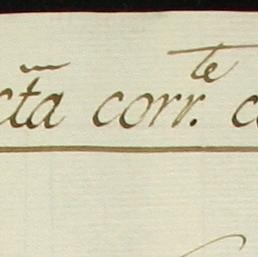 cta corr.te c